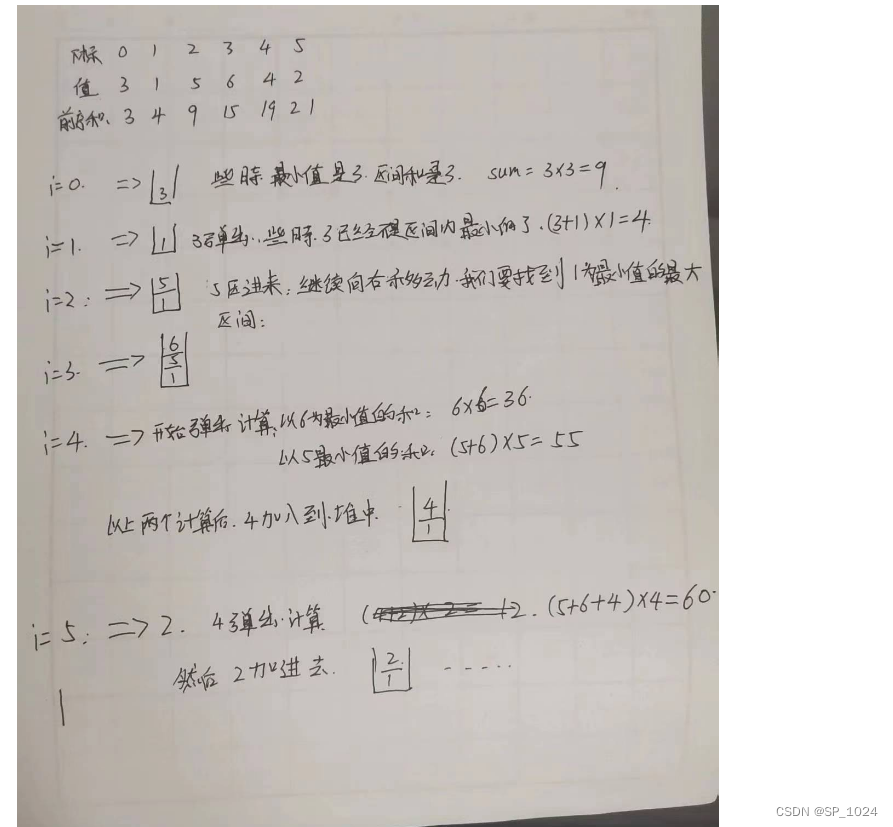 下标 0 1 2 3 4 5
值 3 1 5 6 4 2
前序和. 3 4 9 15 19 21
i=0. => 3 些时 最小值是3. 区间和是3. sum = 3×3=9.
i=1. => 1 3弹出, 些时 3已经不是区间内最小的了. (3+1)×1=4.
i=2: => 5 1 5压进来, 继续向右移动. 我们要找到1为最小值的最大
区间:
i=3. => 6 5 1
i=4. => 开始弹出 计算, 以6为最小值的和: 6×6=36.
以5最小值的和: (5+6)×5=55
以上两个计算后. 4加入到堆中. 4 1
i=5: => 2. 4弹出计算 (5+6+4)×4=60.
然后 2加进去. 2 1 -----
CSDN @SP_1024